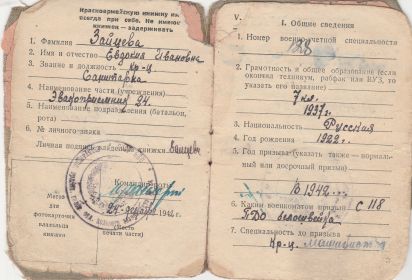 Красноармейскую книжку иметь
всегда при себе. Не имеющих
книжки — задерживать
1. Фамилия Зайцева
2. Имя и отчество Евдокия Ивановна
3. Звание и должность Кр-ц
Санитарка
4. Наименование части (учреждения)
Эвакоприемник 24.
5. Наименование подразделения (батальон,
рота)
6. № личного знака
Личная подпись владельца книжки Зайцева
Командир роты
24 1942 г.
Место
для
фотокарточки
владельца
книжки
(Место
печати части)
V.
I. Общие сведения
1. Номер военно-учетной специальности
128
2. Грамотность и общее образование (если
окончил техникум, рабфак или ВУЗ, то
указать его название)
7 кл.
1937 г.
3. Национальность Русская
4. Год рождения 1922 г.
5. Год призыва (указать также — нормаль-
ный или досрочный призыв)
1942
6. Каким военкоматом призван С 118
7. Специальность до призыва
Кр-ц.